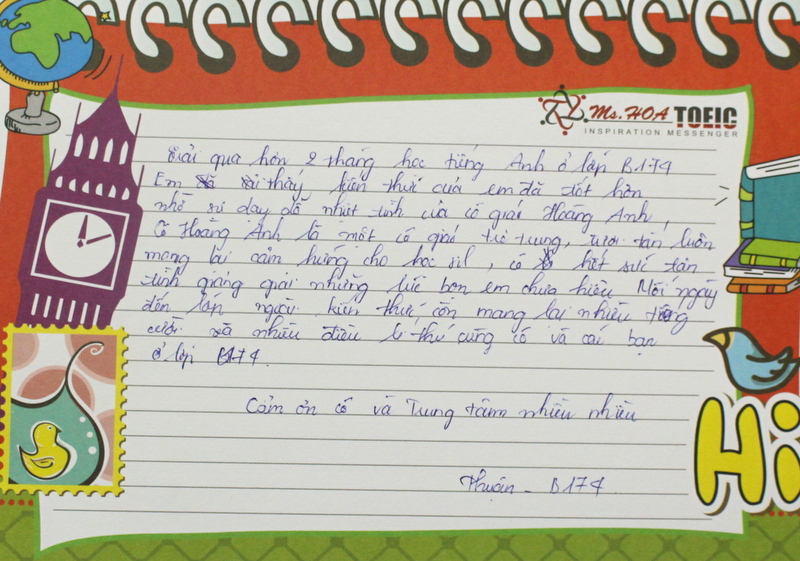 Ms. HOA TOEIC
INSPIRATION MESSENGER
Trải qua hơn 2 tháng học tiếng Anh ở lớp B174
Em thấy kiến thức của em đã tốt hơn
nhờ sự dạy dỗ nhiệt tình của cô giáo Hoàng Anh,
Cô Hoàng Anh là một cô giáo trẻ trung, tươi tắn luôn
mang lại cảm hứng cho học sil, cô hết sức tận
tình giảng giải những lúc bọn em chưa hiểu. Mỗi ngày
đến lớp ngoài kiến thức còn mang lại nhiều tiếng
cười và nhiều điều lí thú cùng cô và các bạn
ở lớp B174.
Cảm ơn cô và Trung tâm nhiều nhiều
Thuận - B174
Hi